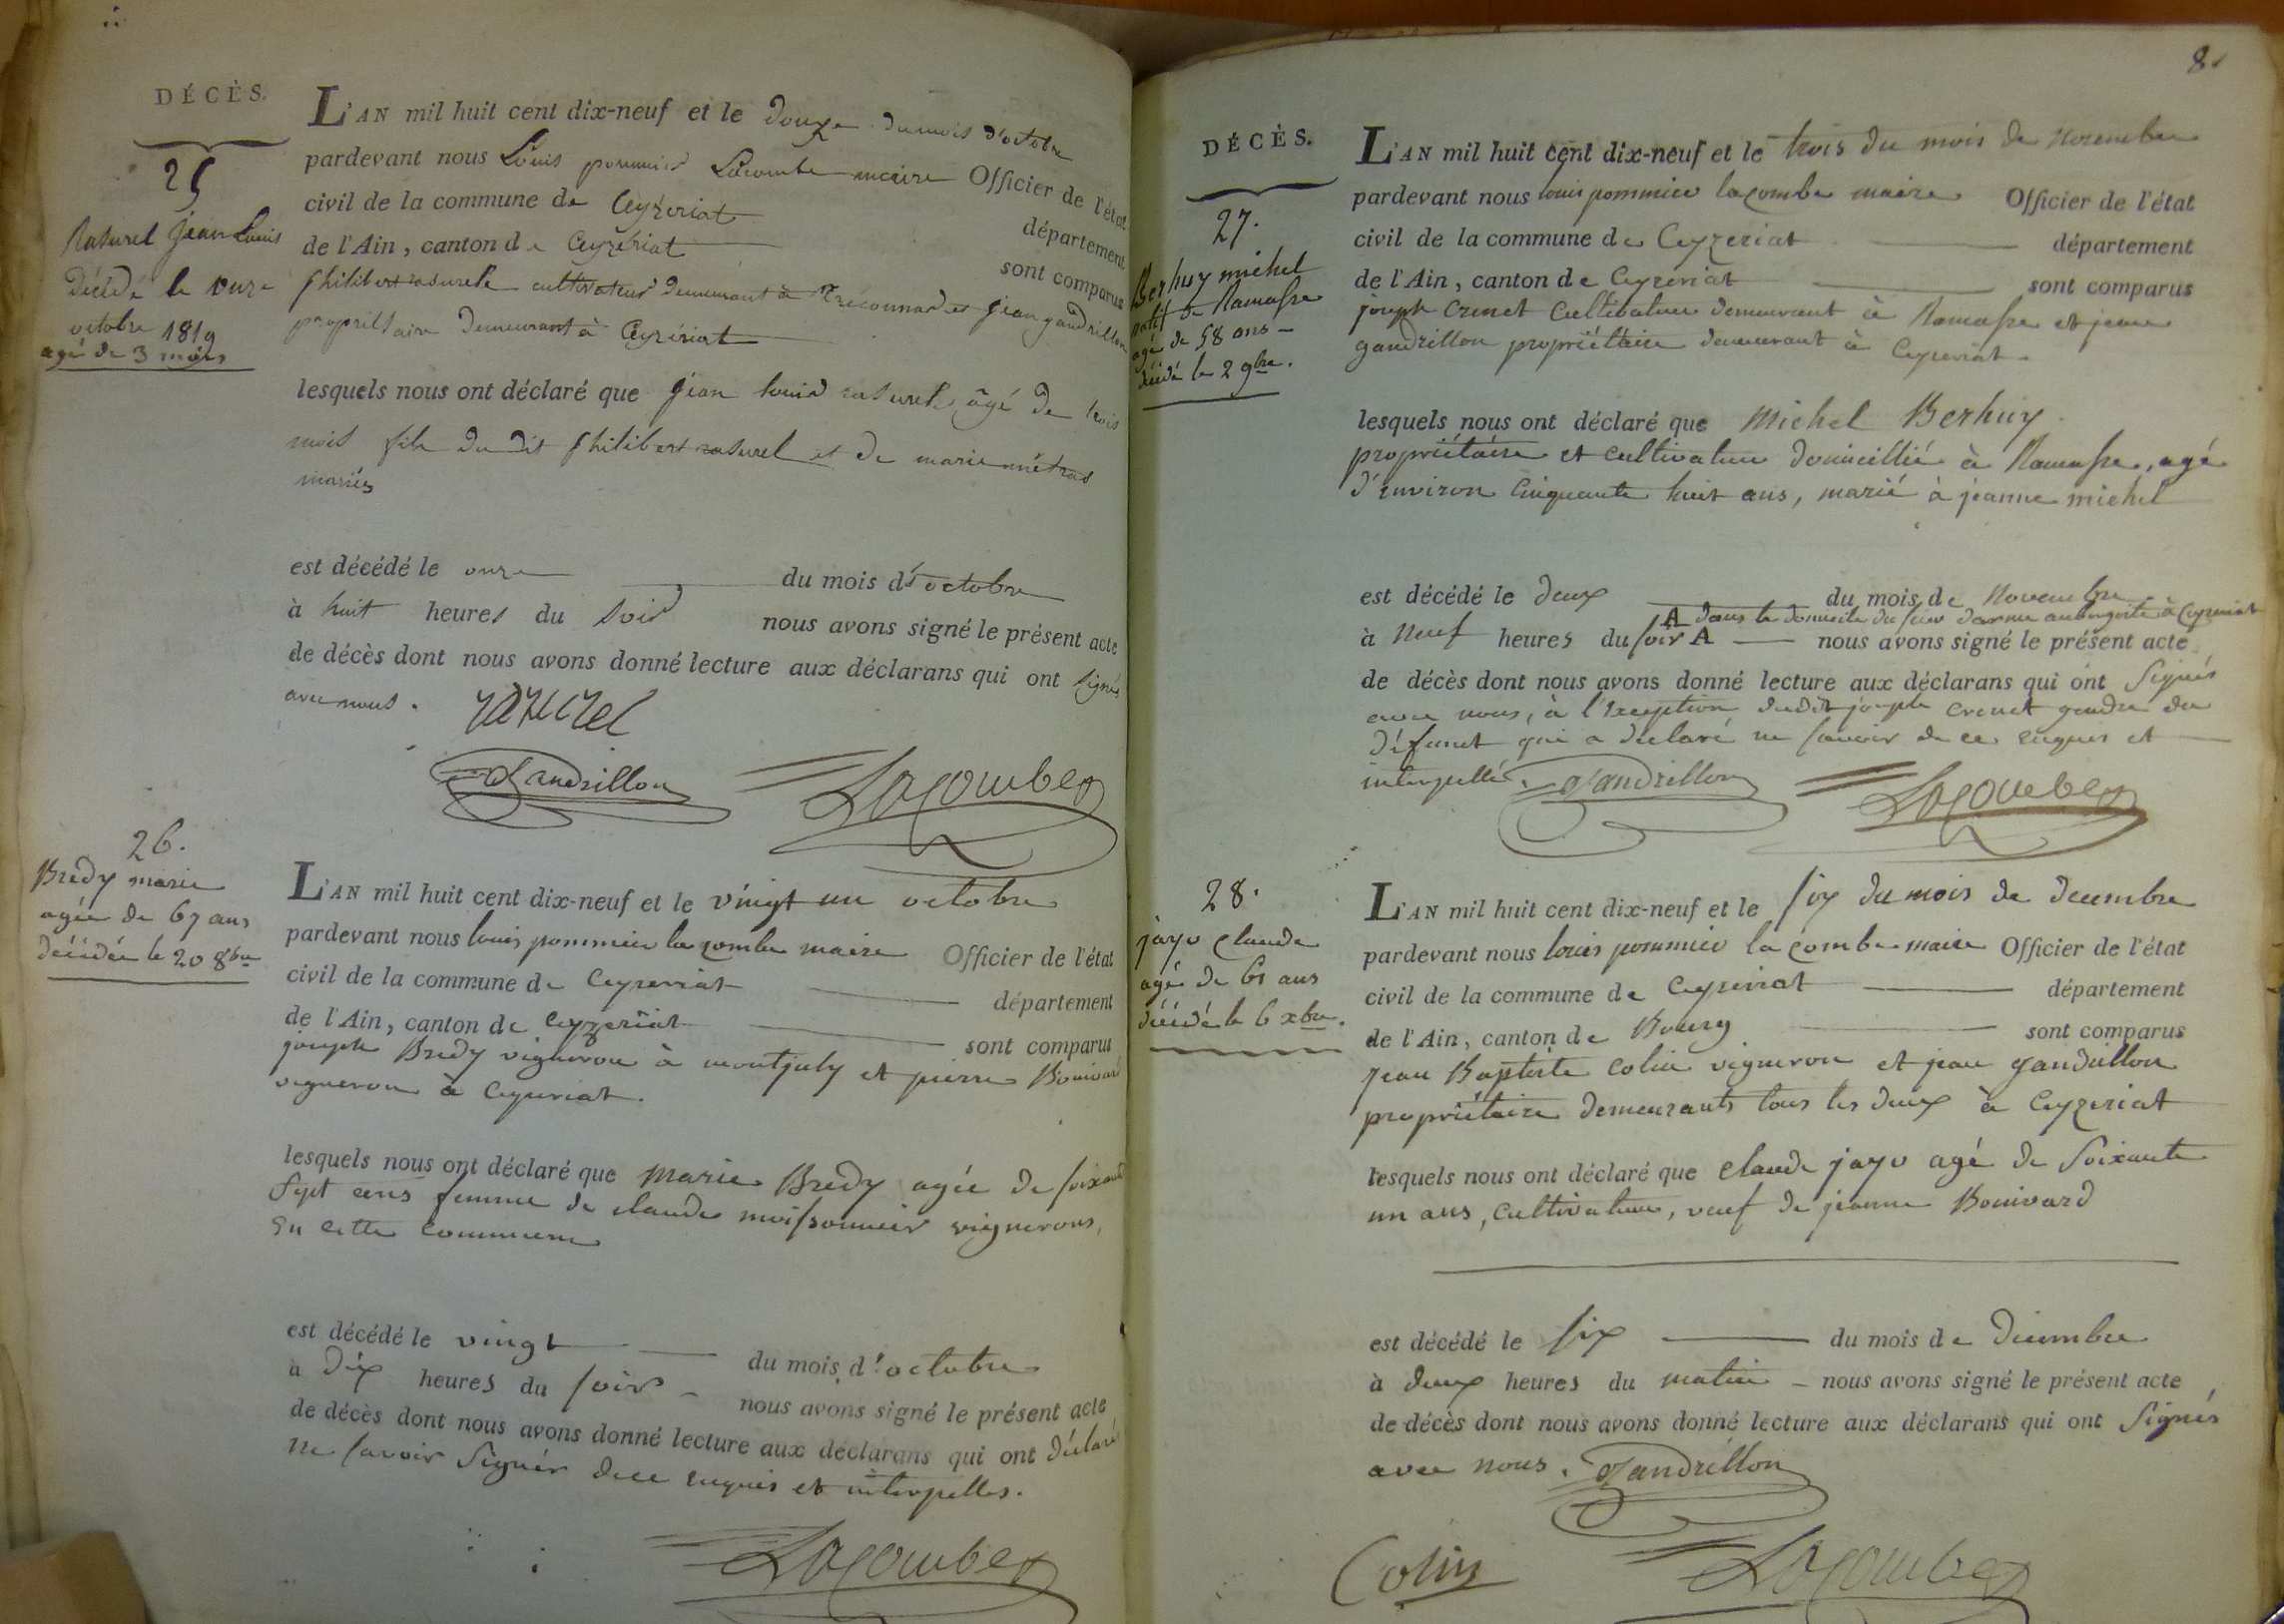 DÉCÈS.
25
Rasurel Jean Louis
décédé le onze
octobre 1819
agé de 3 mois
L'AN mil huit cent dix-neuf et le douze du mois d'octobre
pardevant nous Louis pommier Lacombe maire Officier de l'état
civil de la commune de Ceyzeriat département
de l'Ain, canton de Ceyzériat sont comparus
philibert rasurel cultivateur demeurant à et jean gandrillon
propriétaire demeurant à Ceyzériat
lesquels nous ont déclaré que jean louis rasurel âgé de trois
mois fils du dit philibert rasurel et de marie métras
mariés
est décédé le onze du mois d'octobre
à huit heures du soir nous avons signé le présent acte
de décès dont nous avons donné lecture aux déclarans qui ont signés
avec nous.
rasurel
Gandrillon Lacombe
26.
Bredy marie
agée de 67 ans
décédée le 20 8bre
L'AN mil huit cent dix-neuf et le vingt un octobre
pardevant nous louis pommier la combe maire Officier de l'état
civil de la commune de Ceyzeriat département
de l'Ain, canton de Ceyzeriat sont comparus
joseph Bredy vigneron à montjuly et pierre Bonivard
vigneron à Ceyzeriat.
lesquels nous ont déclaré que marie Bredy agée de soixante
sept ans femme de claude moissonnier vignerons,
en cette commune
est décédé le vingt du mois d'octobre
à dix heures du soir nous avons signé le présent acte
de décès dont nous avons donné lecture aux déclarans qui ont déclaré
ne savoir signer de ce enquis et interpellés.
Lacombe
8.
DÉCÈS.
27.
Berhuy michel
natif de Ramasse
agé de 58 ans
décédé le 2 9bre.
L'AN mil huit cent dix-neuf et le trois du mois de novembre
pardevant nous louis pommier lacombe maire Officier de l'état
civil de la commune de Ceyzeriat département
de l'Ain, canton de Ceyzeriat sont comparus
joseph crenet cultivateur demeurant à Ramasse et jean
gandrillon propriétaire demeurant à Ceyzeriat.
lesquels nous ont déclaré que michel Berhuy
propriétaire et cultivateur domicillié à Ramasse, agé
d'environ cinquante huit ans, marié à jeanne michel
est décédé le deux du mois de Novembre
A dans le domicile du sieur aubergiste à Ceyzeriat
à neuf heures du soir A nous avons signé le présent acte
de décès dont nous avons donné lecture aux déclarans qui ont signés
avec nous, à l'exception dudit joseph crenet gendre du
défunt qui a déclaré ne savoir de ce enquis et
interpellé. Gandrillon Lacombe
28.
jayr claude
agé de 61 ans
décédé le 6 xbre.
L'AN mil huit cent dix-neuf et le six du mois de decembre
pardevant nous louis pommier la combe maire Officier de l'état
civil de la commune de Ceyzeriat département
de l'Ain, canton de Bourg sont comparus
jean Baptiste colin vigneron et jean gandrillon
propriétaire demeurants tous les deux à Ceyzeriat
lesquels nous ont déclaré que claude jayr agé de soixante
un ans, cultivateur, veuf de jeanne Bonivard
est décédé le six du mois de décembre
à deux heures du matin nous avons signé le présent acte
de décès dont nous avons donné lecture aux déclarans qui ont signés
avec nous. Gandrillon
Colin Lacombe